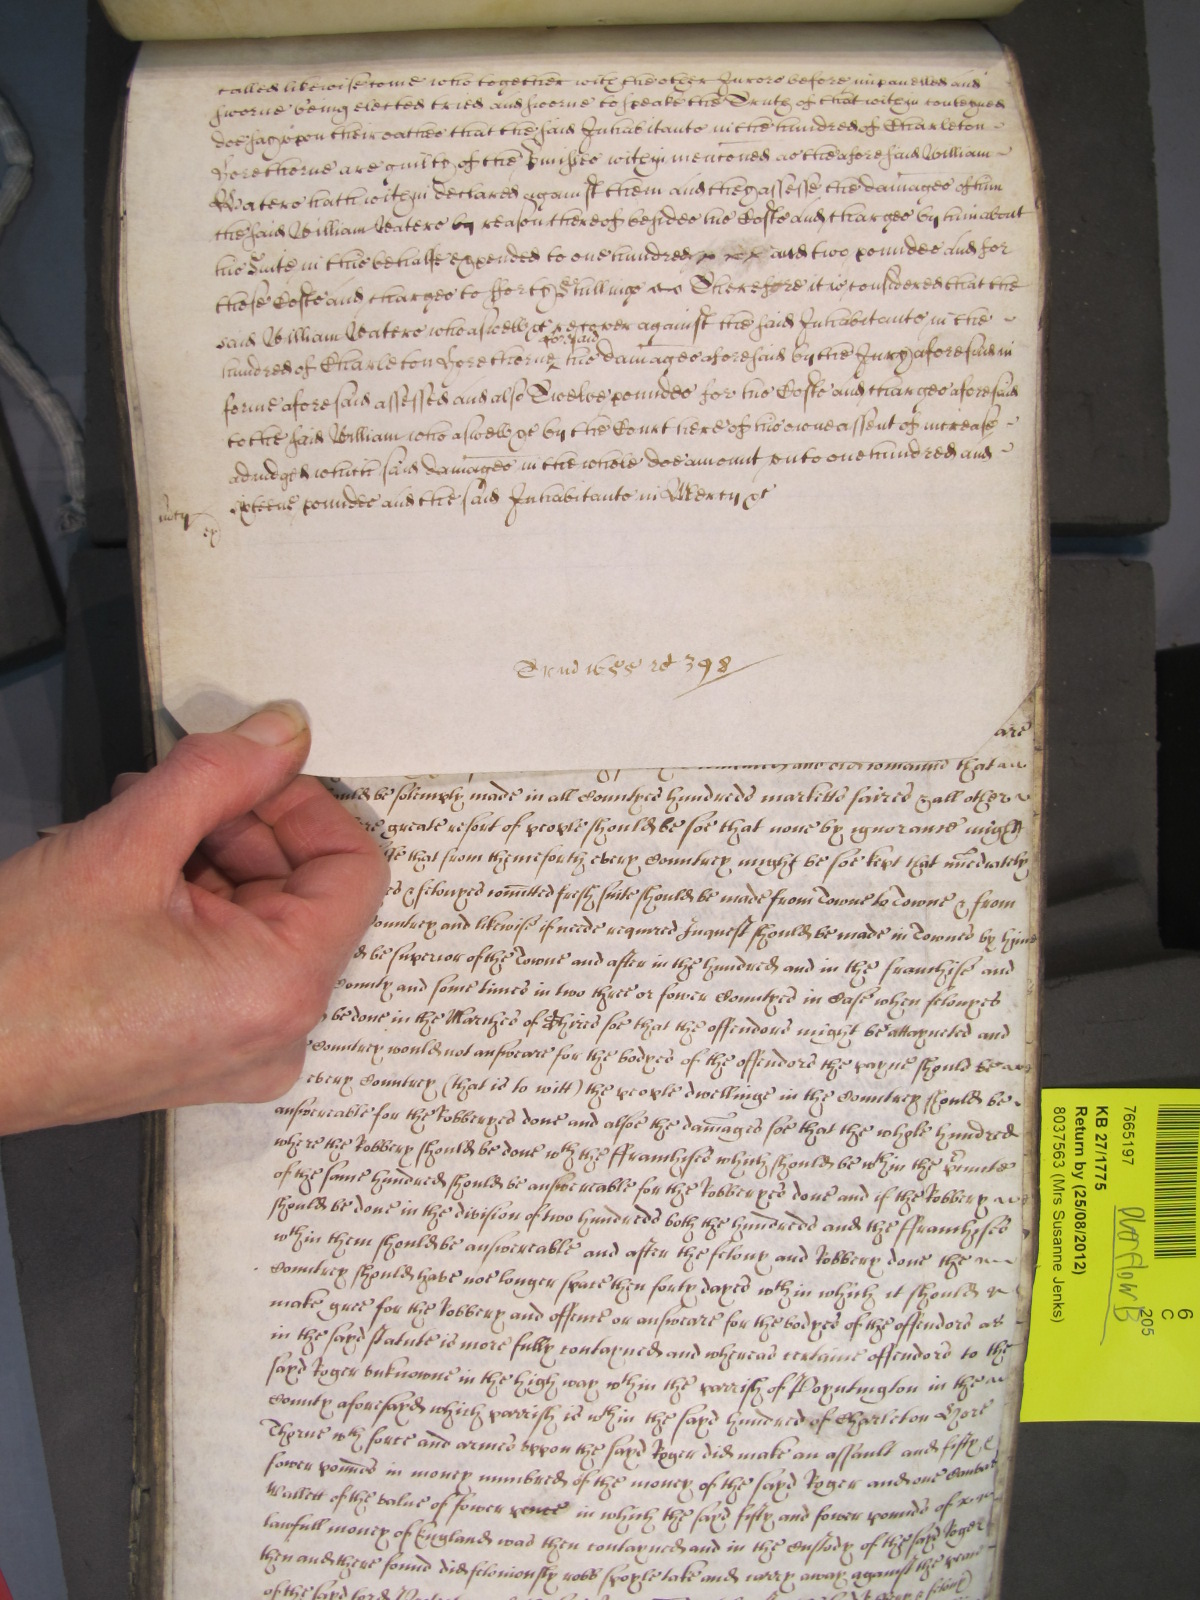 called likewise come who together with the other Jurors before impanelled and
sworne being elected tried and sworne to speake the Truth of that within conteyned
doe say upon their oathes that the said Inhabitants in the hundred of Charleton
Horethorne are guilty of the within mentioned as the aforesaid William
Waters hath within declared against them and they assesse the damages of him
the said William Waters by reason thereof besides his Costs and charges by him about
his Suite in this behalfe expended to one hundred and two poundes and for
those Costs and charges to fforty Shillings Therefore it is considered that the
said William Waters who aswell &c recover against the said Inhabitants in the
hundred of Charleton Horethorne aforesaid his damages aforesaid by the Jury aforesaid in
forme aforesaid assessed and also Twelve poundes for his Costs and charges aforesaid
to the said William who aswell &c by the Court here of his owne assent of increase
adiudged which said damages in the whole doe amount unto one hundred and
sixteene poundes and the said Inhabitants in Mercy &c
mercy
Trin 1655 rd 398
are
that
should be solempnly made in all Countyes hundreds marketts faires & all other
where greate resort of people should be soe that none by ignorance might
that from thenceforth every Countrey might be soe kept that imediately
& felonyes comitted fresh suite should be made from Towne to Towne & from
Countrey and likewise if neede required Inquest should be made in Townes by him
be superior of the Towne and after in the hundred and in the franchise and
County and some times in two three or fower Countyes in Case when felonyes
be done in the Marches of Shires soe that the offendors might be attaynted and
Countrey would not answeare for the bodyes of the offendors the payne should be
every Countrey (that is to witt) the people dwellinge in the Countrey should be
answereable for the Robberyes done and alsoe the damages soe that the whole hundred
where the Robbery should be done wth the ffranchises which should be wthin the
of the same hundred should be answereable for the Robberyes done and if the Robbery
should be done in the division of two hundreds both the hundreds and the ffranchyses
wthin them should be answereable and after the felony and Robbery done the
Countrey should have noe longer space then forty dayes wthin which it should
make gree for the Robbery and offence or answeare for the bodyes of the offendors as
in the sayd statute is more fully contayned and whereas certaine offendors to the
sayd Roger unknowne in the high way wthin the parrish of Poyntington in the
County aforesayd which parrish is wthin the sayd hundred of Charleton Hore
Thorne wth force and armes uppon the sayd Roger did make an assault and fifty &
fower pounds in money numbred of the money of the sayd Roger and one
Wallett of the value of fower pence in which the sayd fifty and fower pounds of
lawfull money of England was then contayned and in the Custody of the sayd Roger
then and there found did feloniously robb spoyle take and carry away against the peace
of the sayd lord
7665197
KB 27/1775
Return by (25/08/2012)
8037563 (Mrs Susanne Jenks)
6
C
205